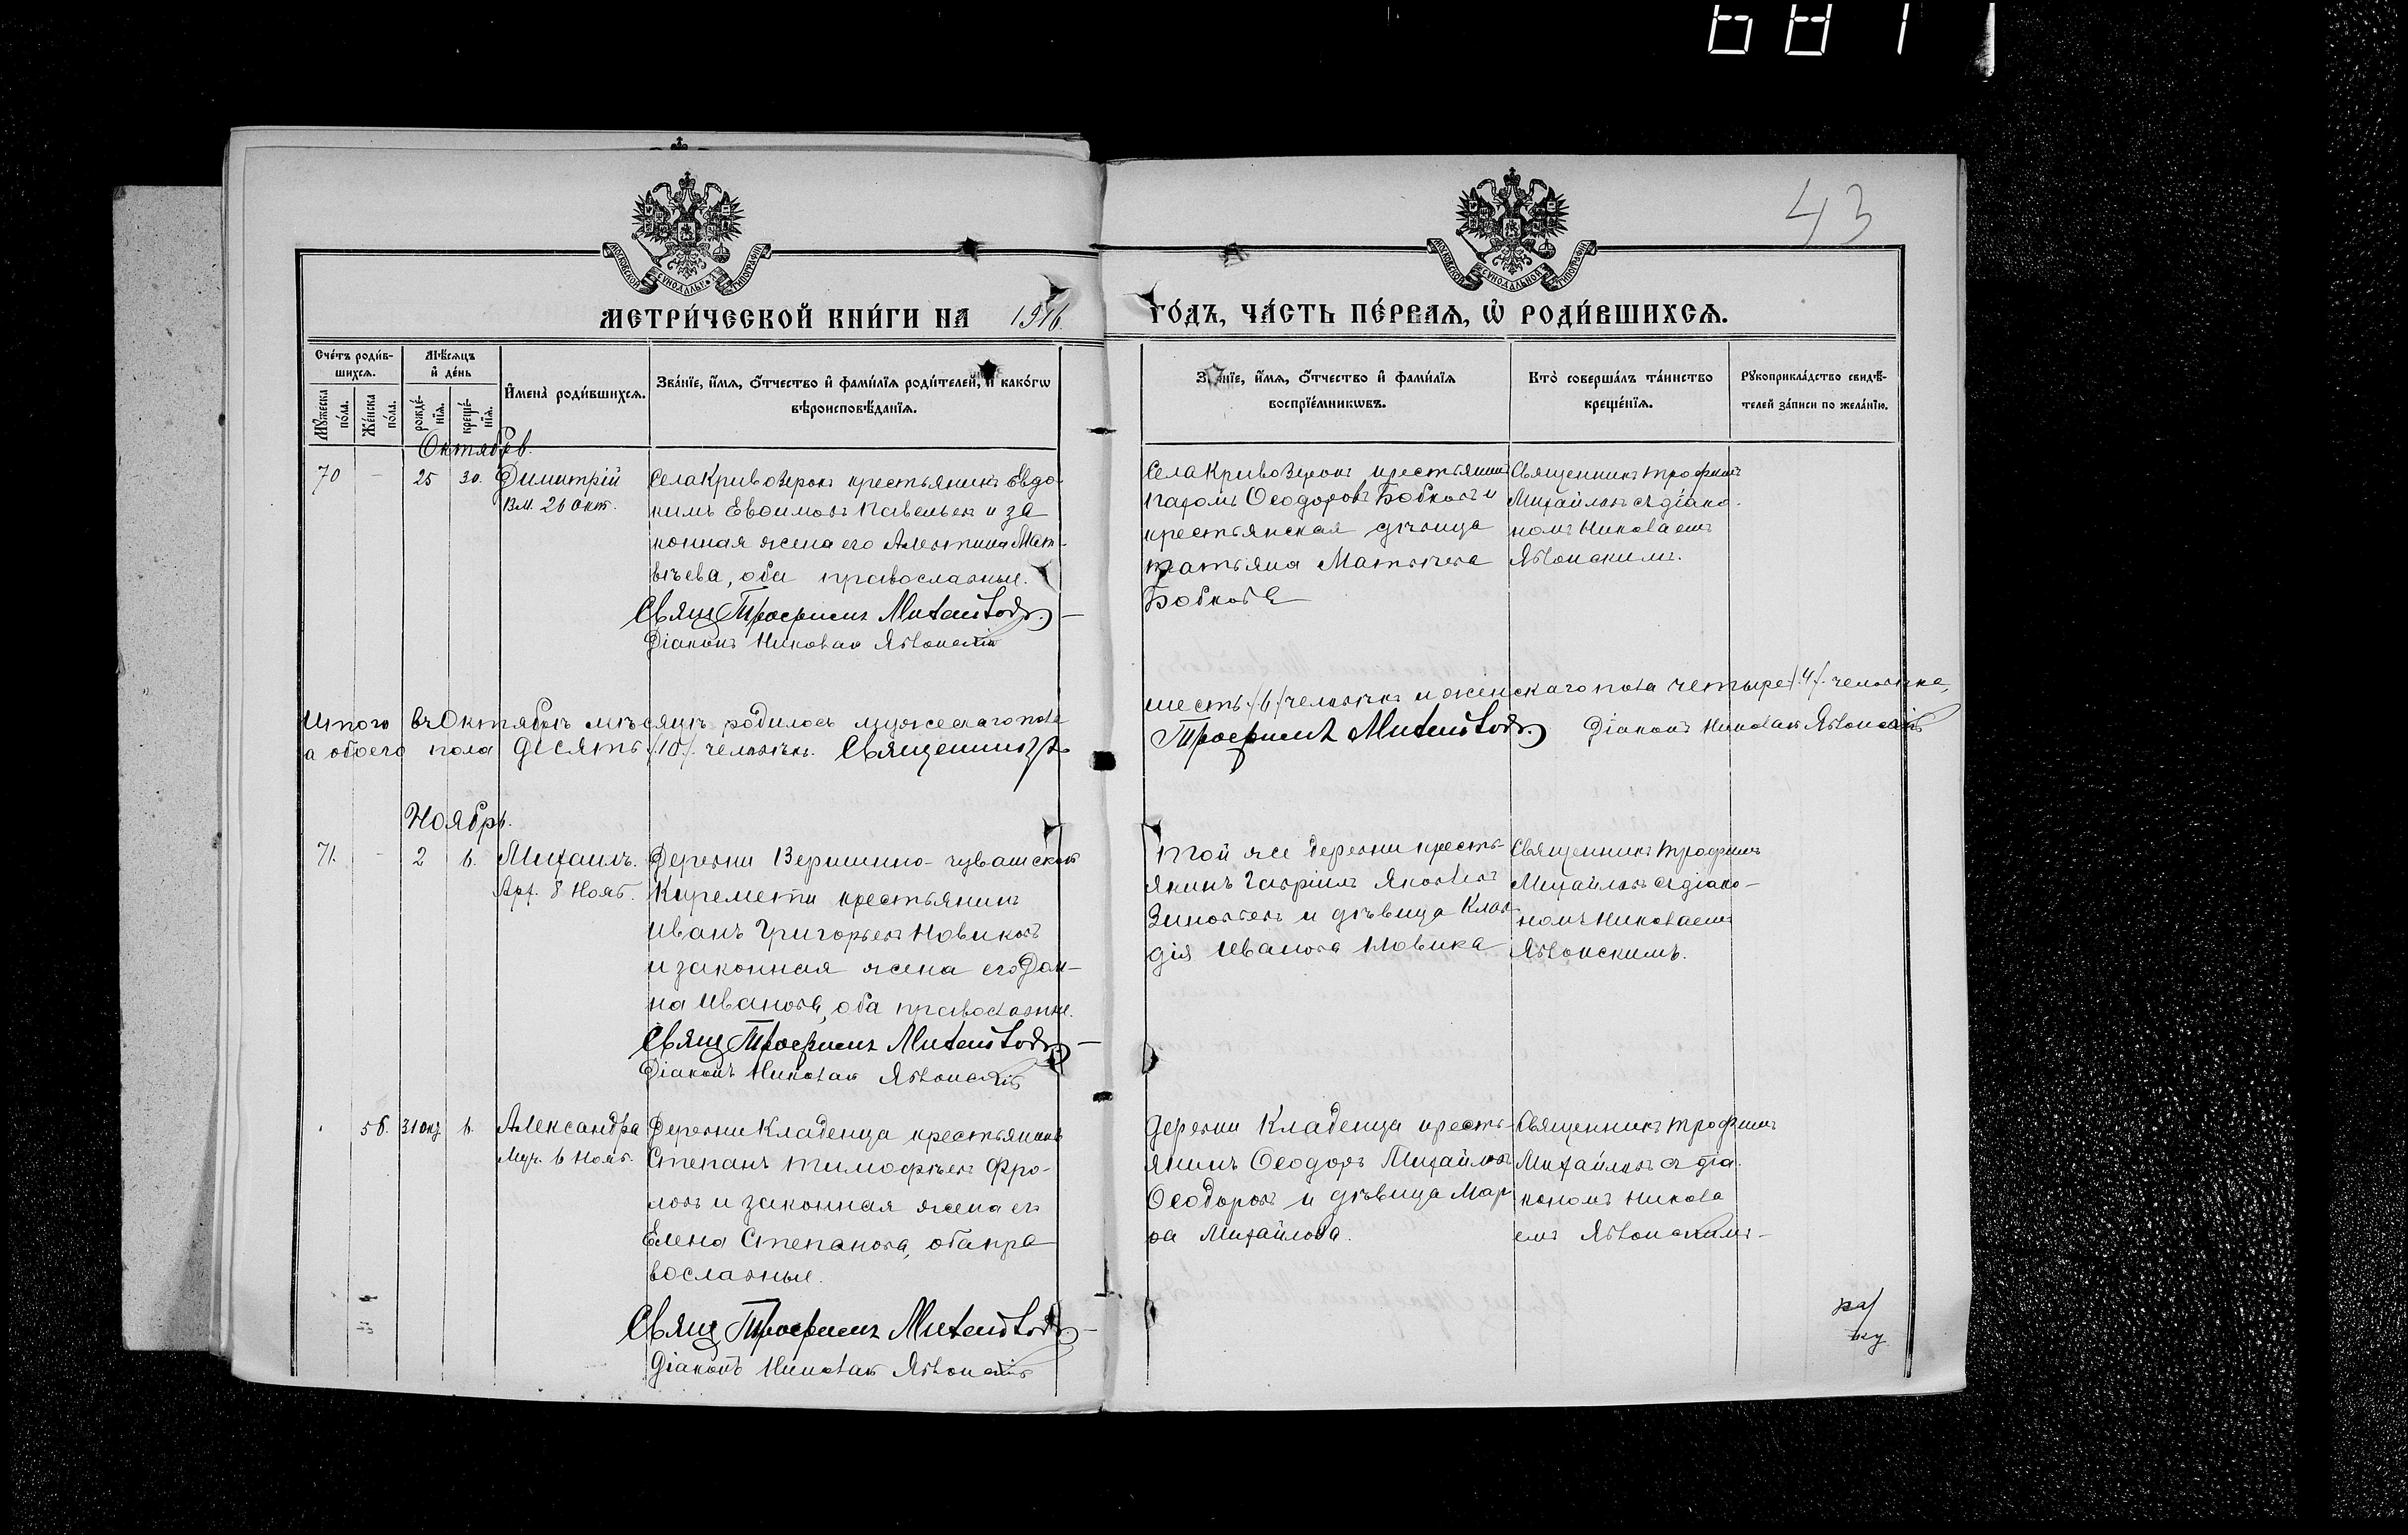 43
МОСКОВСКОЙ СѴНОДАЛЬНОЙ ТИПОГРАФІИ
МОСКОВСКОЙ СѴНОДАЛЬНОЙ ТИПОГРАФІИ
МЕТРИ́ЧЕСКОЙ КНИ́ГИ НА 1916 ГО́ДЪ, ЧА́СТЬ ПЕ́РВАѦ, Ѡ҆ РОДИ́ВШИХСѦ.
Сче́тъ роди́в-
шихсѧ.
Мꙋ́жеска по́ла.
Же́нска по́ла.
Мѣ́сѧцъ
и҆ де́нь
рожде́-
нїѧ.
креще́-
нїѧ.
И҆мена̀ роди́вшихсѧ.
Зва́нїе, и҆́мѧ, ѻ҆́тчество и҆ фами́лїѧ роди́телей, и҆ како́гѡ
вѣроисповѣ́данїѧ.
Зва́нїе, и҆́мѧ, ѻ҆́тчество и҆ фами́лїѧ
воспрїе́мникѡвъ.
Кто̀ соверша́лъ та́инство
креще́нїѧ.
Рꙋкоприкла́дство свидѣ́-
телей за́писи по жела́нїю.
Октябрь.
70 - 25 30. Димитрій
Вм. 26 Окт.
Села Кривозерокъ крестьянинъ Евдо-
кимъ Евѳимовъ Павельевъ и за
конная жена его Алевтина Мат-
вѣева, оба православные.
Свящ Трофимъ Михайловъ
Діаконъ Николай Яблонскій
Села Кривозерокъ крестьянинъ
Пахомъ Ѳеодоровъ Бобковъ и
крестьянская дѣвица
Татьяна Матвѣева
Бобкова
Священникъ Трофимъ
Михайловъ съ діако-
номъ Николаемъ
Яблонскимъ.
Итого въ Октябрѣ мѣсяцѣ родилось мужескаго пола шесть /6/ человѣкъ и женскаго пола четыре /4/ человѣка,
а обоего пола десять /10/ человѣкъ. Священникъ Трофимъ Михайловъ Діаконъ Николай Яблонскій
Ноябрь.
71. - 2 6. Михаилъ.
Арх. 8 Нояб.
Деревни Вершино-чувашской
Киремети крестьянинъ
Иванъ Григорьевъ Новиковъ
и законная жена его Дом-
на Иванова, оба православные.
Свящ Трофимъ Михайловъ
Діаконъ Николай Яблонскій
Той же деревни кресть-
янинъ Гавріилъ Яковлевъ
Зиновьевъ и дѣвица Клав
дія Иванова Новика
Священникъ Трофимъ
Михайловъ съ діако-
номъ Николаемъ
Яблонскимъ.
56. 31 окт 6. Александра
Муч. 6 Нояб.
Деревни Кладенца крестьянинъ
Степанъ Тимофѣевъ Фро-
ловъ и законная жена его
Елена Степанова, оба пра
вославные.
Свящ Трофимъ Михайловъ
Діаконъ Николай Яблонскій
Деревни Кладенца кресть-
янинъ Ѳеодоръ Михайловъ
Ѳеодоровъ и дѣвица Мар
ѳа Михайлова.
Священникъ Трофимъ
Михайловъ съ діа-
кономъ Никола
емъ Яблонскимъ